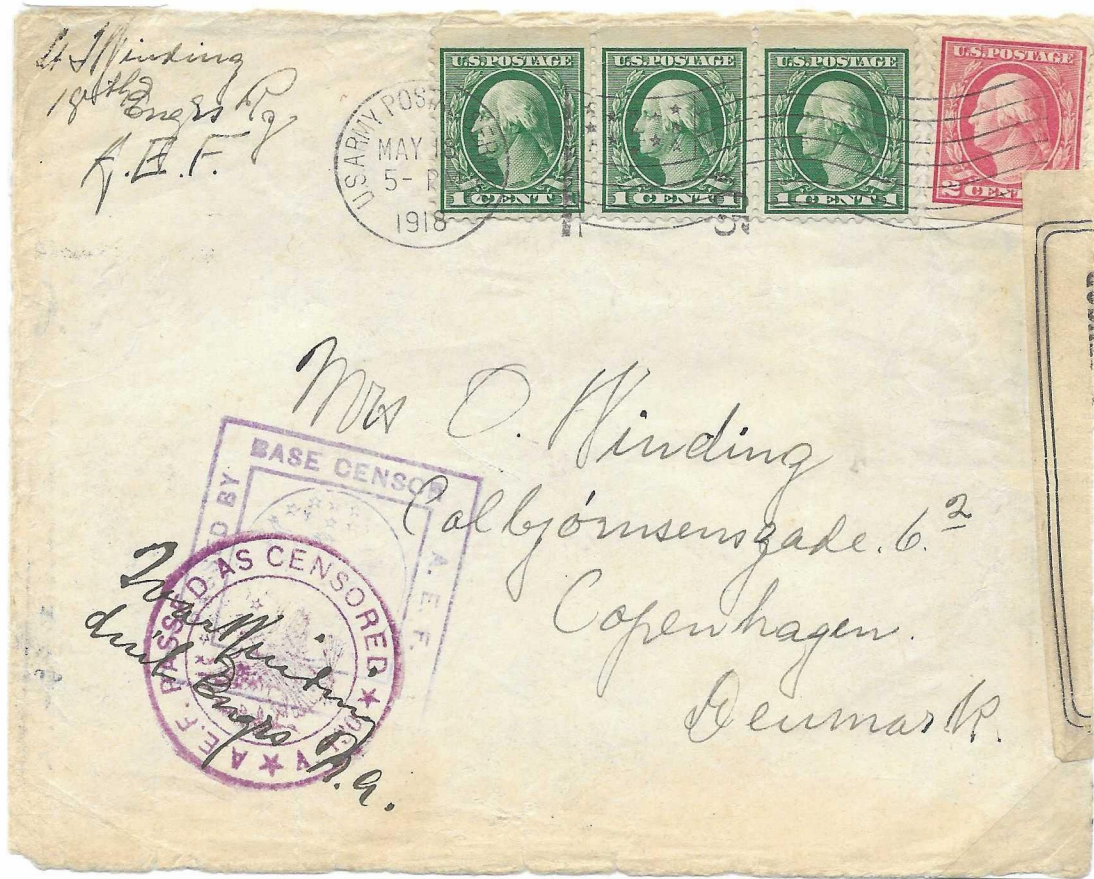 Lt I Winding
18th Engrs Ry
A.E.F.
U.S. ARMY POST
MAY
5- P
1918
U.S. POSTAGE
1 CENT 1
U.S. POSTAGE
1 CENT 1
U.S. POSTAGE
1 CENT 1
U.S. POSTAGE
2 CENT
Mrs O. Winding
Colbjörnsensgade. 6.2
Copenhagen.
Denmark.
BASE CENSOR
A. E. F.
ED BY
A.E.F. PASSED AS CENSORED
Ivar Winding
Engrs N.A.